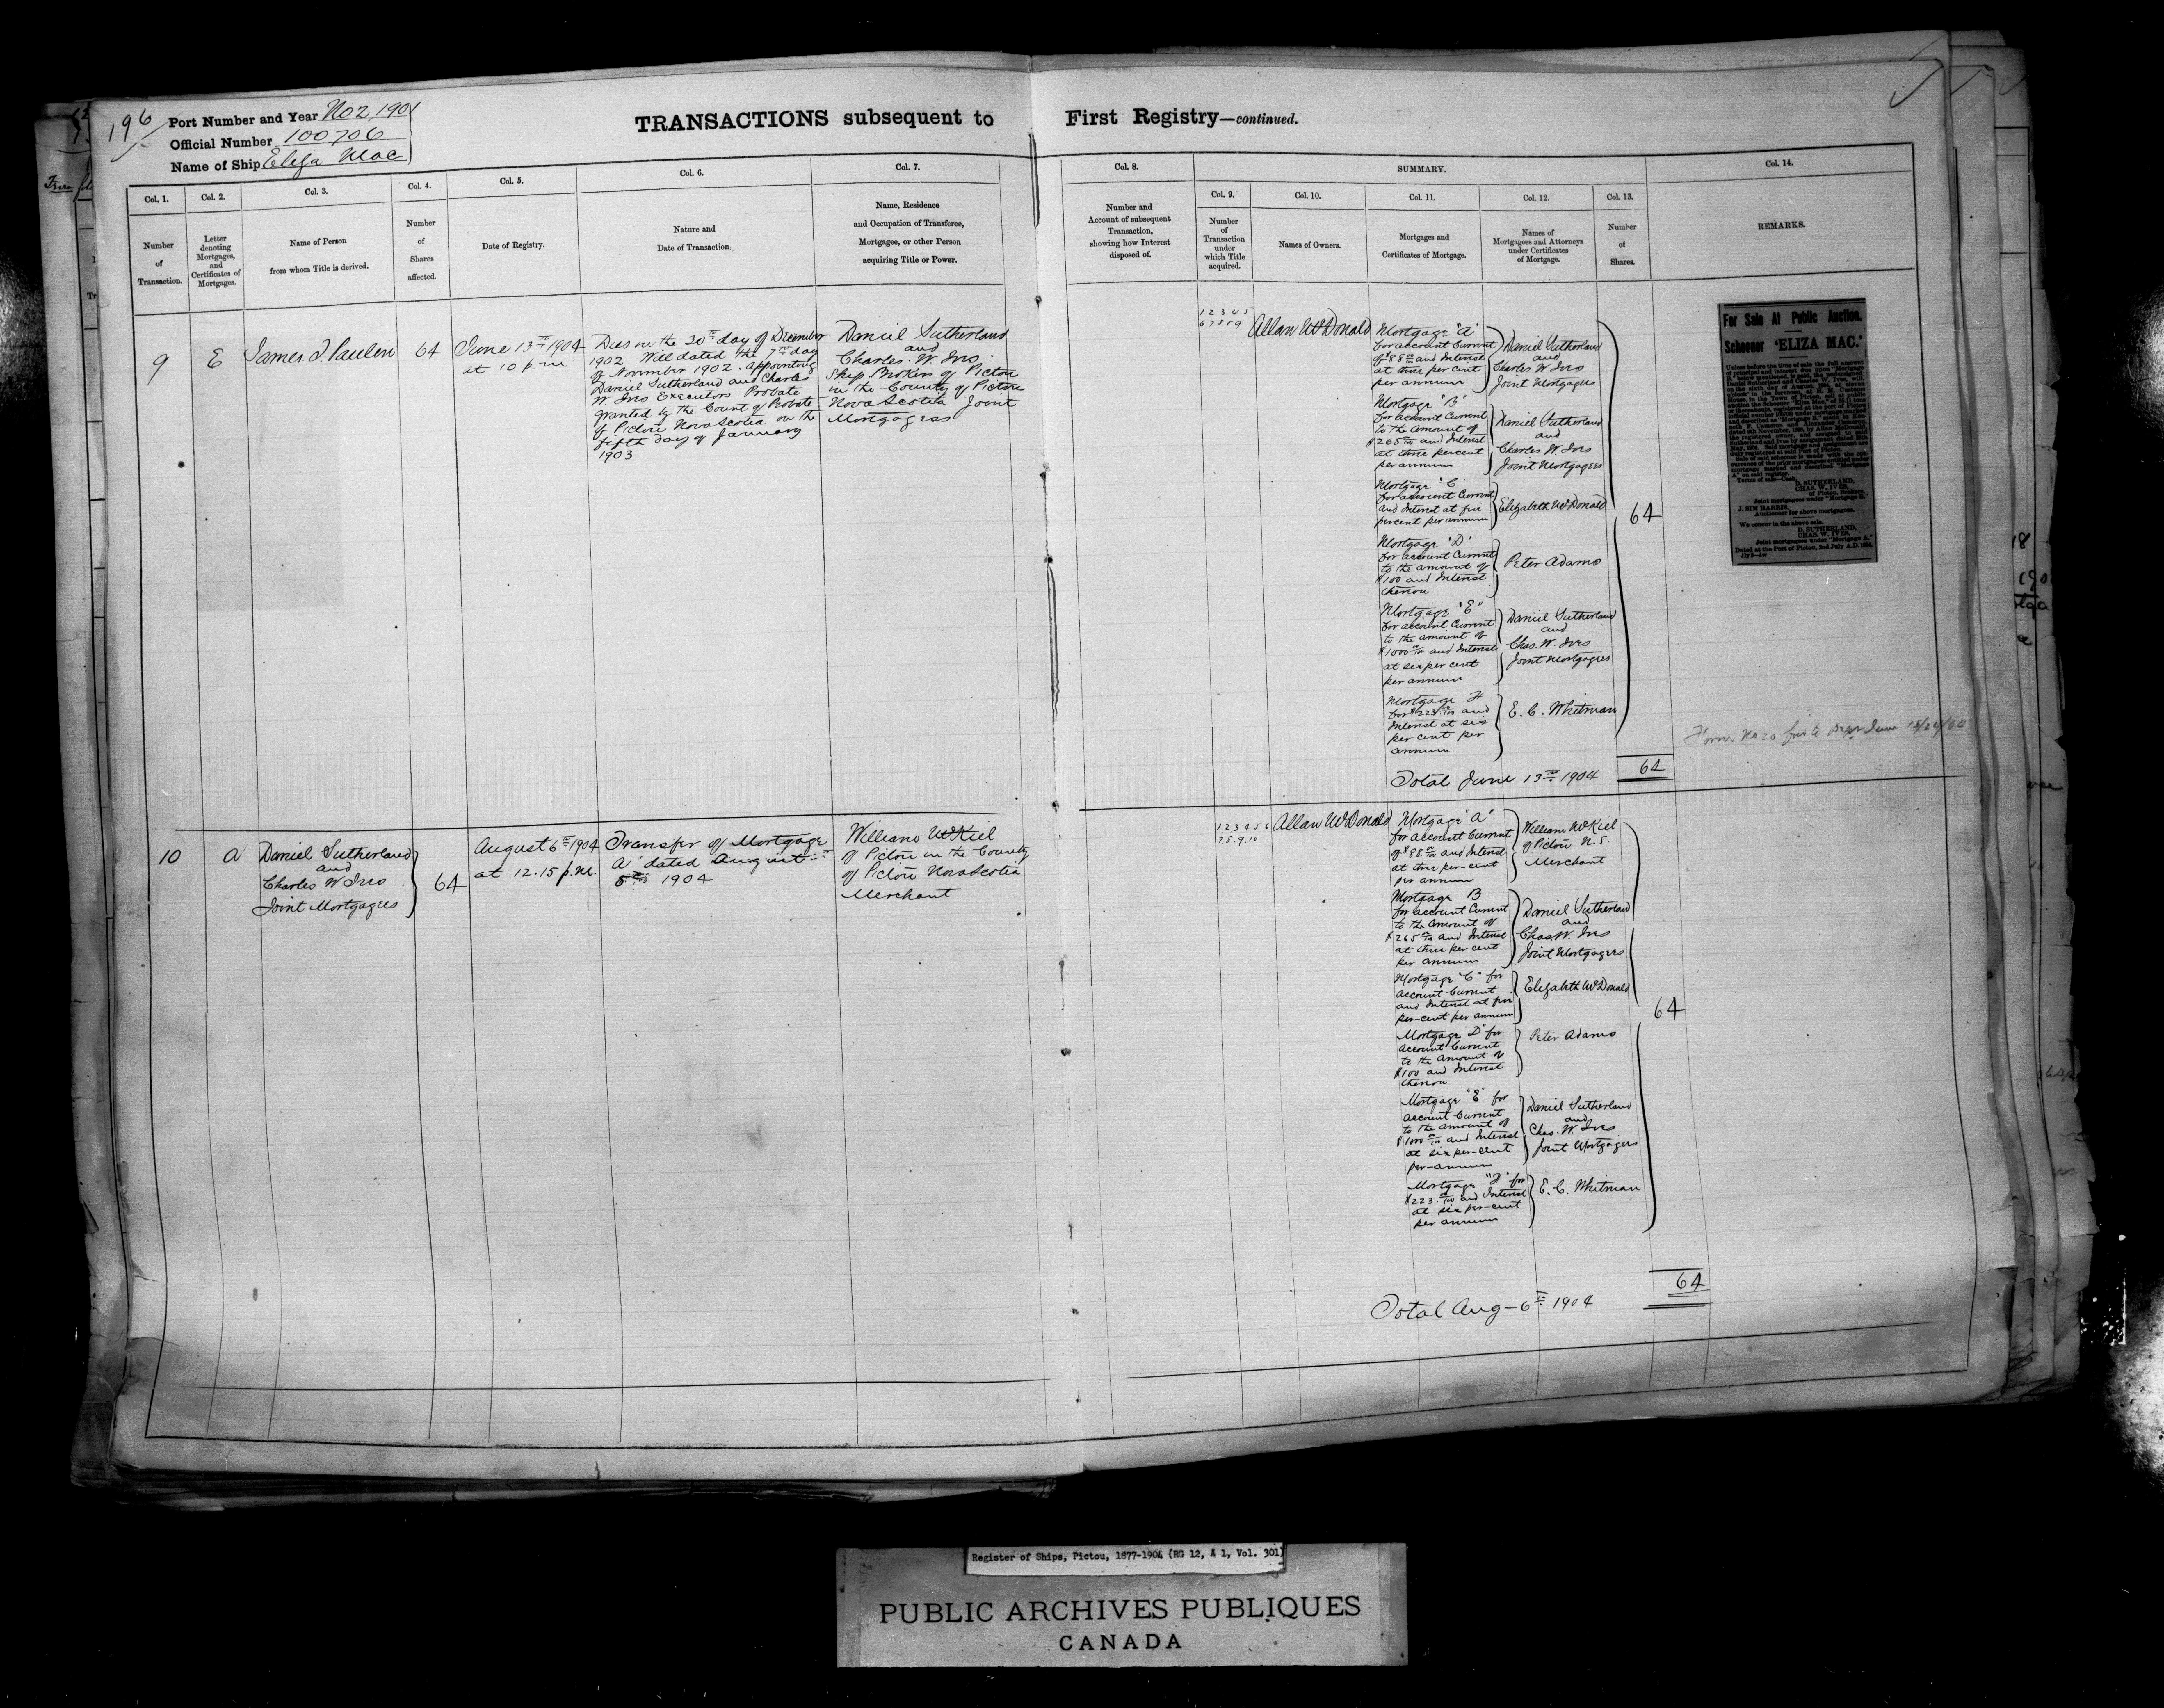 196
Port Number and Year No 2, 1901
Official Number 100706
Name of Ship Eliza Mac
TRANSACTIONS subsequent to First Registry—continued.
Col. 1.
Number
of
Transaction.
Col. 2.
Letter
denoting
Mortgages,
and
Certificates of
Mortgages.
Col. 3.
Name of Person
from whom Title is derived.
Col. 4.
Number
of
Shares
affected.
Col. 5.
Date of Registry.
Col. 6.
Nature and
Date of Transaction.
Col. 7.
Name, Residence
and Occupation of Transferee,
Mortgagee, or other Person
acquiring Title or Power.
Col. 8.
Number and
Account of subsequent
Transaction,
showing how Interest
disposed of.
SUMMARY.
Col. 9.
Number
of
Transaction
under
which Title
acquired.
Col. 10.
Names of Owners.
Col. 11.
Mortgages and
Certificates of Mortgage.
Col. 12.
Names of
Mortgagees and Attorneys
under Certificates
of Mortgage.
Col. 13.
Number
of
Shares.
Col. 14.
REMARKS.
9
E
James. J Paulin
64
June 13th 1904
at 10 p.m.
Dies on the 30th day of December
1902 Will dated the 7th day
of November 1902. Appointing
Daniel Sutherland and Charles
W Ives Executors Probate
granted by the Court of Probate
of Pictou Nova Scotia on the
fifth day of January
1903
Daniel Sutherland
and
Charles. W. Ives
Ship Brokers of Pictou
in the County of Pictou
Nova Scotia Joint
Mortgagees
1 2 3 4 5
6 7 8 8 9
Allan McDonald
Mortgage "A"
for account Current
of $88 and Interest
at three per cent
per annum
Daniel Sutherland
and
Charles W Ives
Joint Mortgagees
Mortgage "B"
for account Current
to the Amount of
$265 and Interest
at three percent
per annum
Daniel Sutherland
and
Charles W Ives
Joint Mortgagees
Mortgage "C
for account Current
and Interest at five
percent per annum
Elizabeth McDonald
Mortgage "D"
for account Current
to the amount of
$100 and Interest
thereon
Peter Adams
Mortgage "E"
for account Current
to the amount of
$1000 and Interest
at six per cent
per annum
Daniel Sutherland
and
Chas. W. Ives
Joint Mortgagees
Mortgage F
for $223 and
Interest at six
per cent per
annum
E. C. Whitman
64
Total June 13th 1904
64
For Sale At Public Auction.
Schooner 'ELIZA MAC.'
Terms of sale—Cash.
D. SUTHERLAND,
CHAS. W. IVES,
of Pictou, Brokers,
Joint mortgagees under "Mortgage B."
J. SIM HARRIS,
Auctioneer for above mortgagees.
We concur in the above sale.
D. SUTHERLAND,
CHAS. W. IVES,
Joint mortgagees under "Mortgage A."
Dated at the Port of Pictou, 2nd July A.D. 1904.
Form No 20
10
A
Daniel Sutherland
and
Charles W Ives
Joint Mortgagees
64
August 6th 1904
at 12.15 p.m.
Transfer of Mortgage
A dated August
5th 1904
William McKiel
of Pictou in the County
of Pictou Nova Scotia
Merchant
1 2 3 4 5 6
7 8. 9. 10
Allan McDonald
Mortgage "A"
for account Current
of $88 and Interest
at three per-cent
per annum
William McKiel
of Pictou N.S.
Merchant
Mortgage B
for account Current
to the amount of
$265 and Interest
at three per cent
per annum
Daniel Sutherland
and
Chas W. Ives
Joint Mortgagees
Mortgage "C" for
account Current
and Interest at five
per-cent per annum
Elizabeth McDonald
Mortgage "D" for
account Current
to the Amount of
$100 and Interest
thereon
Peter Adams
Mortgage "E" for
account Current
to the amount of
$1000 and Interest
at six per-cent
per-annum
Daniel Sutherland
and
Chas. W. Ives
Joint Mortgagees
Mortgage "F" for
$223 and Interest
at six per-cent
per annum
E. C. Whitman
64
Total Aug-6th 1904
64
Register of Ships, Pictou, 1877-1904 (RG 12, A 1, Vol. 301)
PUBLIC ARCHIVES PUBLIQUES
CANADA